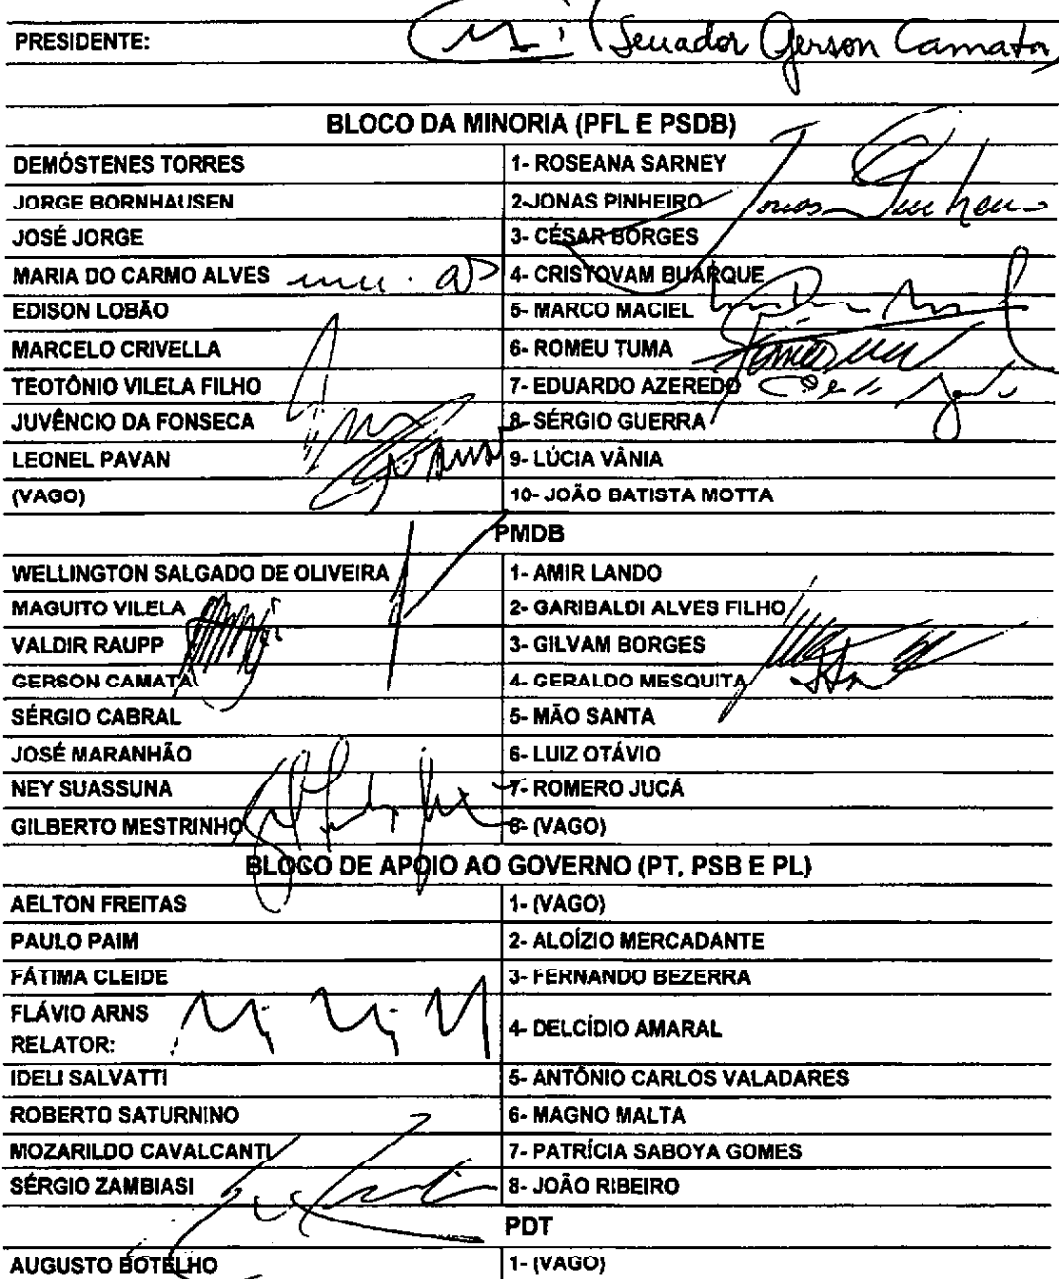 PRESIDENTE: (Senador Gerson Camata)
BLOCO DA MINORIA (PFL E PSDB)
DEMÓSTENES TORRES 1- ROSEANA SARNEY
JORGE BORNHAUSEN 2-JONAS PINHEIRO
JOSÉ JORGE 3- CÉSAR BORGES
MARIA DO CARMO ALVES 4- CRISTOVAM BUARQUE
EDISON LOBÃO 5- MARCO MACIEL
MARCELO CRIVELLA 6- ROMEU TUMA
TEOTÔNIO VILELA FILHO 7- EDUARDO AZEREDO
JUVÊNCIO DA FONSECA 8- SÉRGIO GUERRA
LEONEL PAVAN 9- LÚCIA VÂNIA
(VAGO) 10- JOÃO BATISTA MOTTA
PMDB
WELLINGTON SALGADO DE OLIVEIRA 1- AMIR LANDO
MAGUITO VILELA 2- GARIBALDI ALVES FILHO
VALDIR RAUPP 3- GILVAM BORGES
GERSON CAMATA 4- GERALDO MESQUITA
SÉRGIO CABRAL 5- MÃO SANTA
JOSÉ MARANHÃO 6- LUIZ OTÁVIO
NEY SUASSUNA 7- ROMERO JUCÁ
GILBERTO MESTRINHO 8- (VAGO)
BLOCO DE APOIO AO GOVERNO (PT, PSB E PL)
AELTON FREITAS 1- (VAGO)
PAULO PAIM 2- ALOÍZIO MERCADANTE
FÁTIMA CLEIDE 3- FERNANDO BEZERRA
FLÁVIO ARNS
RELATOR: 4- DELCÍDIO AMARAL
IDELI SALVATTI 5- ANTÔNIO CARLOS VALADARES
ROBERTO SATURNINO 6- MAGNO MALTA
MOZARILDO CAVALCANTI 7- PATRÍCIA SABOYA GOMES
SÉRGIO ZAMBIASI 8- JOÃO RIBEIRO
PDT
AUGUSTO BOTELHO 1- (VAGO)